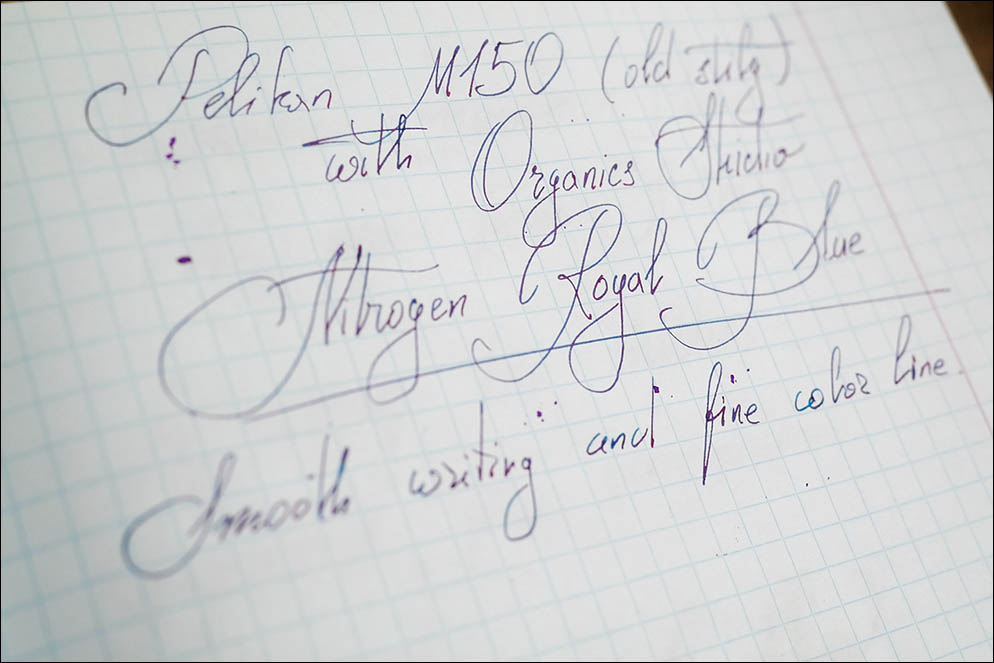 Pelikan M150 (old style)
with Organics Studio
Nitrogen Royal Blue
Smooth writing and fine color line.